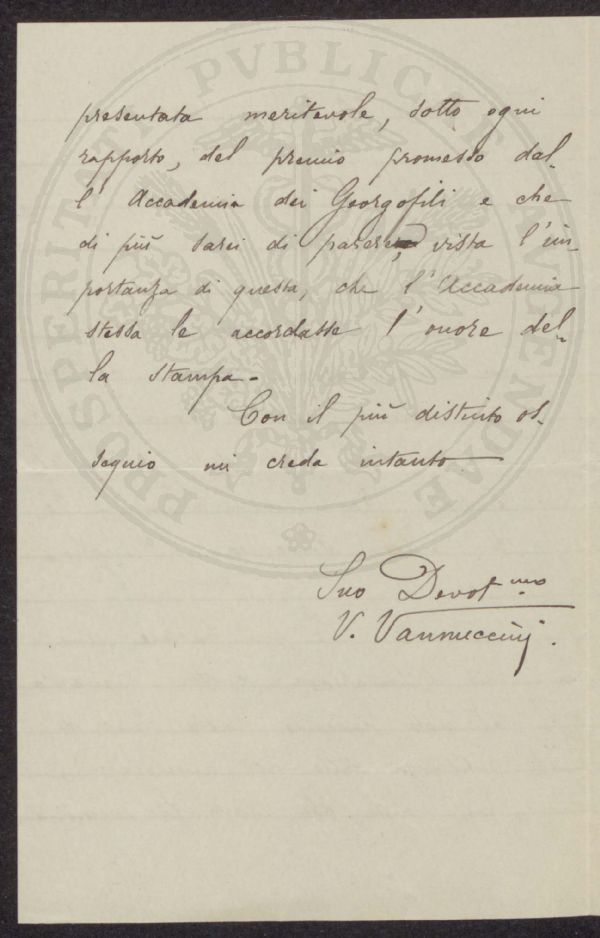 PROSPERITATI PVBLICAE AVGENDAE
presentata meritevole, sotto ogni
rapporto, del premio promesso dal-
l'Accademia dei Georgofili e che
di più sarei di parere, vista l'im-
portanza di questa, che l'Accademia
stessa le accordasse l'onore del-
la stampa.
Con il più distinto os-
sequio mi creda intanto
Suo Devot.mo
V. Vannuccini.